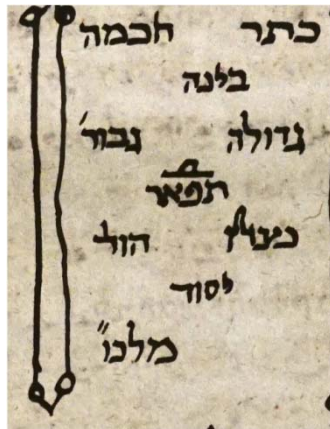 כתר חכמה
בינה
גדולה גבור'
תפאר
הוד
יסוד
מלכו"